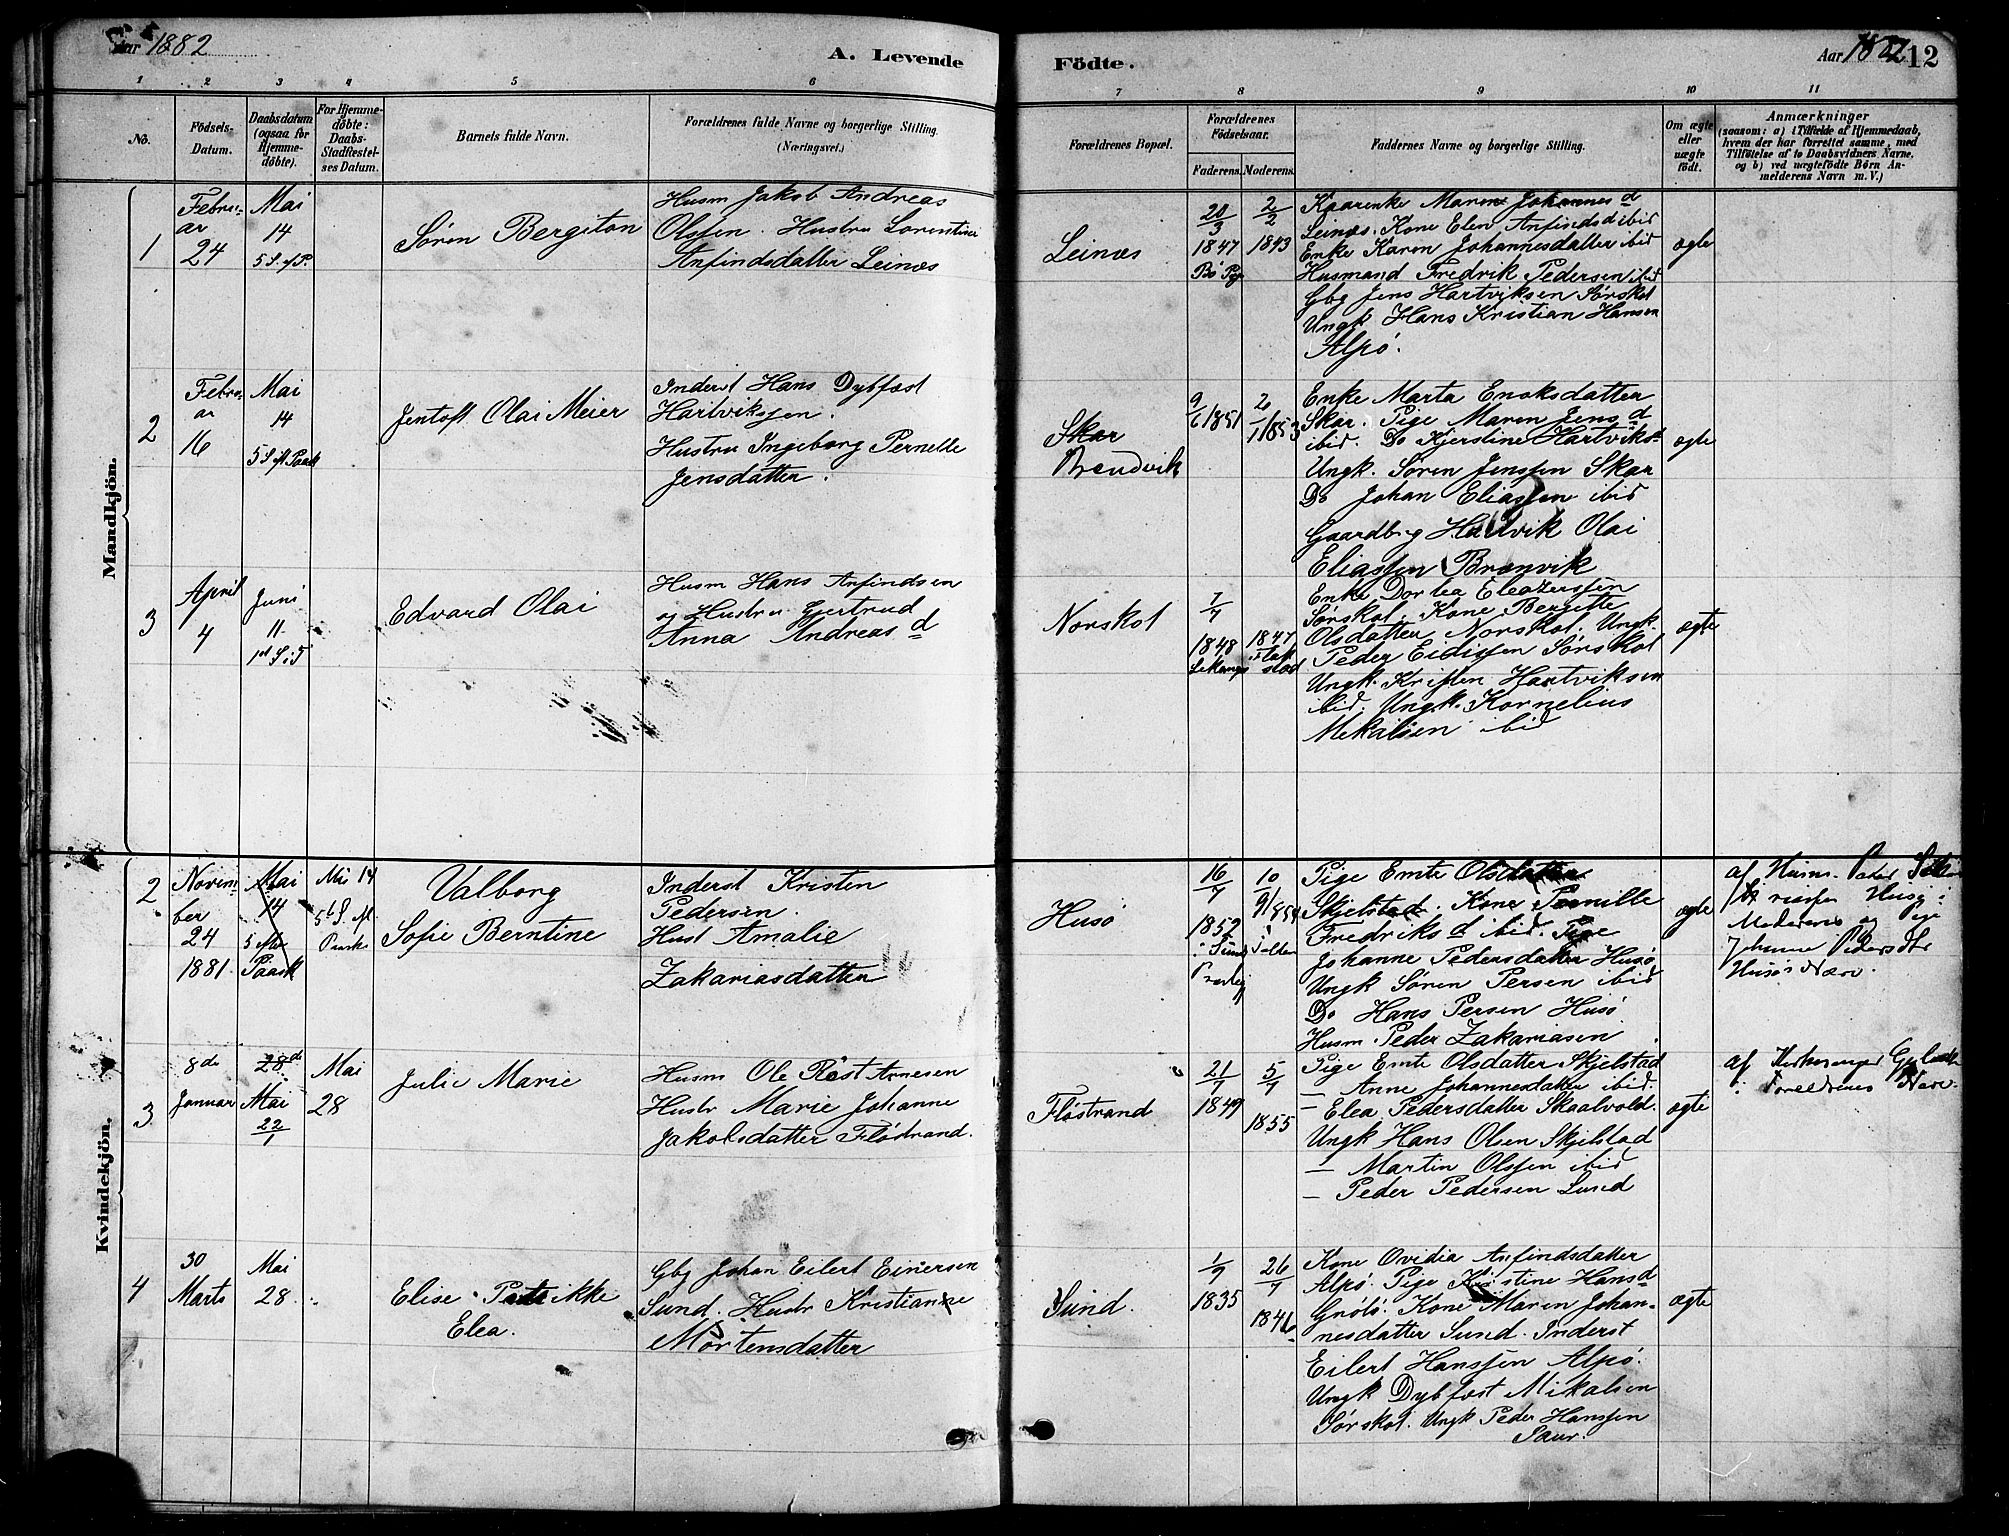 Aar 1882
A. Levende Födte.
Aar 1882
12
1 2 3 4 5 6 7 8 9 10 11
No.
Födsels-Datum.
Daabsdatum (ogsaa for Hjemme-döbte).
For Hjemme-döbte: Daabs-Stadfestel-ses Datum.
Barnets fulde Navn.
Forældrenes fulde Navne og borgerlige Stilling.
(Næringsvei.)
Forældrenes Bopæl.
Forældrenes Födselsaar.
Faderens. Moderens.
Faddernes Navne og borgerlige Stilling.
Om ægte eller uægte födt.
Anmærkninger
(saasom: a) i Tilfælde af Hjemmedaab,
hvem der har forrettet samme, med
Tilföielse af to Daabsvidners Navne,
og b) ved uægtefödte Börn An-
melderens Navn m. V.)
Mandkjön.
1
Februar
24
Mai
14
5 S. e/P.
Søren Bergiton
Husm Jakob Andreas
Olssen. Hustru Lorentine
Anfindsdatter Leinæs
Leinæs
20/3
1847
2/2
1843
Maren Johannes d
Leinæs. Kone Elen Anfindsd ibid
Enke Karen Johannesdatter ibid
Husmand Fredrik Pedersen ibid
Gbg Jens Hartviksen Sørskot
Ungk Hans Kristian Hansen
Alpø.
ægte
2
Februar
16
Mai
14
5 S. ef. Paask
Jentoft Olai Meier
Inderst Hans Dybfest
Hartvikssen.
Hustru Ingeborg Pernelle
Jensdatter.
Skar
Brendvik
9/6 1851
2/1 1853
Enke Marta Enoksdatter
Skar. Pige Maren Jens d
ibid. Do Kjerstine Hartviksd
Ungk. Søren Jenssen Skar
Do Johan Eliassen ibid
Gaardbrg Hartvik Olai
Eliassen Brenvik
ægte
3
April
4
Juni
11
Edvard Olai
Husm Hans Anfindsen
og Hustru Gjertrud
Anna Andreas d
Norskot
1/7
1848
1847
Enke Dortea Eleazerssen
Sørskot. Kone Bergitte
Olsdatter, Norskot. Ungk.
Peder Eidissen Sørskot
Ungk. Kristen Hartviksen
ibid. Ungk. Kornelius
Mekalsen ibid
ægte
Kvindekjön.
2
Novem-
ber
24
1881.
Mai
14
5 efter
Paask
Mai 14
5te S. ef.
Paaske
Valborg
Sofie Berntine
Inderst Kristen
Pedersen.
Hust Amalie
Zakariasdatter
Husø
16/7
1852
10/9 1854
Pige Emte Olsdatter
Skjelstad. Kone Pernille
Fredriks d ibid. Pige
Johanne Pedersdatter Husø
Ungk Søren Persen ibid
Do Hans Persen Husø
Husm Peder Zakariasen.
ægte
af Husm. Peder
Husø i
Moderens og Pige
Johanne Pedersdtr
Husøs Nærv.
3
8de
Januar
28de
Mai
22/1
Mai
28
Julie Marie
Husm Ole Røst Arnesen
Hustr Marie Johanne
Jakobsdatter Fløstrand.
Fløstrand
21/7
1849
5/7
1855
Pige Emte Olsdatter Skjelstad
— Anne Johannesdatter ibid.
— Elea Pedersdatter Skaalvold.
Ungk Hans Olsen Skjelstad
— Martin Olssen ibid
— Peder Pedersen Sund
ægte
af Kirkesanger
i Foreldrenes Nærv.
4
30
Marts
Mai
28
Elise Patrikke
Elea.
Gbg Johan Eilert Einersen
Sund. Hustr Kristianne
Mortensdatter
Sund.
1/9
1835
26/7
1846
Kone Ovidia Anfindsdatter
Alpø. Pige Kristine Hansd
Grøtø. Kone Maren Johan-
nesdatter Sund. Inderst
Eilert Hanssen Alpø.
Ungk Dybfest Mikalsen
Sørskot. Ungk Peder Hanssen
Saur.
ægte